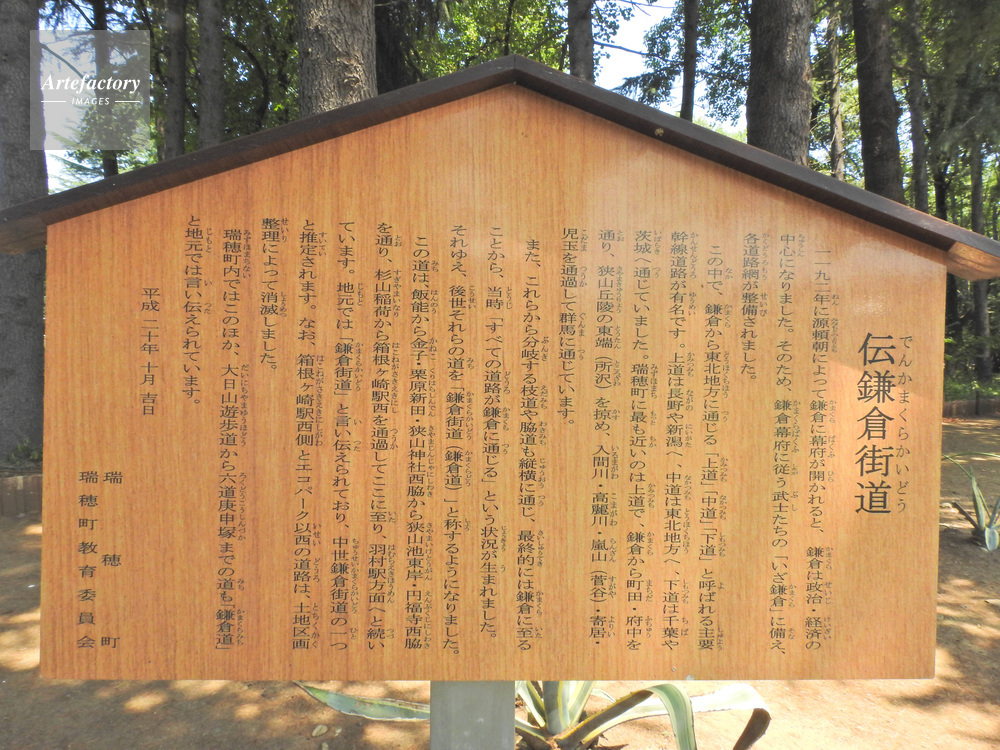 Artefactory
IMAGES
でんかまくらかいどう
伝鎌倉街道
一一九二年に源頼朝によって鎌倉に幕府が開かれると、鎌倉は政治・経済の
中心になりました。そのため、鎌倉幕府に従う武士たちの「いざ鎌倉」に備え、
各道路網が整備されました。
この中で、鎌倉から東北地方に通じる「上道」「中道」「下道」と呼ばれる主要
幹線道路が有名です。上道は長野や新潟へ、中道は東北地方へ、下道は千葉や
茨城へ通じていました。瑞穂町に最も近いのは上道で、鎌倉から町田・府中を
通り、狭山丘陵の東端（所沢）を掠め、入間川・高麗川・嵐山（菅谷）・寄居・
児玉を通過して群馬に通じています。
また、これらから分岐する枝道や脇道も縦横に通じ、最終的には鎌倉に至る
ことから、当時「すべての道路が鎌倉に通じる」という状況が生まれました。
それゆえ、後世それらの道を「鎌倉街道（鎌倉道）」と称するようになりました。
この道は、飯能から金子・栗原新田・狭山神社西脇から狭山池東岸・円福寺西脇
を通り、杉山稲荷から箱根ヶ崎駅西を通過してここに至り、羽村駅方面へと続い
ています。地元では「鎌倉街道」と言い伝えられており、中世鎌倉街道の一つ
と推定されます。なお、箱根ヶ崎駅西側とエコパーク以西の道路は、土地区画
整理によって消滅しました。
瑞穂町内ではこのほか、大日山遊歩道から六道庚申塚までの道も「鎌倉道」
と地元では言い伝えられています。
平成二十年十月吉日
瑞穂町
瑞穂町教育委員会